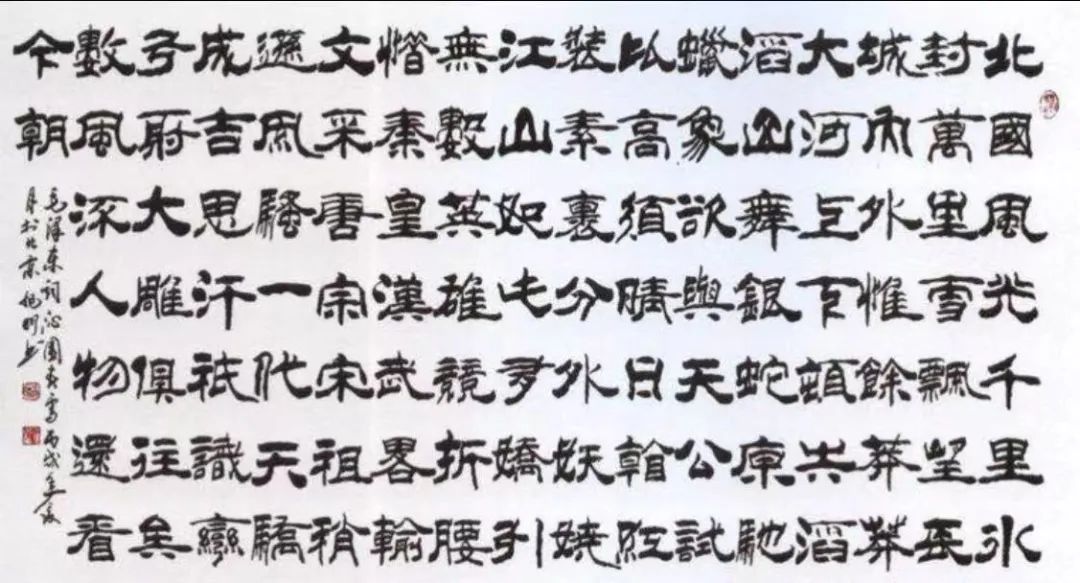 北國風光千里冰
封萬里雪飄望長
城內外惟餘莽莽
大河上下頓失滔
滔山舞銀蛇原馳
蠟象欲與天公試
比高須晴日看紅
裝素裹分外妖嬈
江山如此多嬌引
無數英雄競折腰
惜秦皇漢武畧輸
文采唐宗宋祖稍
遜風騷一代天驕
成吉思汗祇識彎
弓射大雕俱往矣
數風流人物還看
今朝
毛澤東詞沁園春雪丙戌年
月於北京